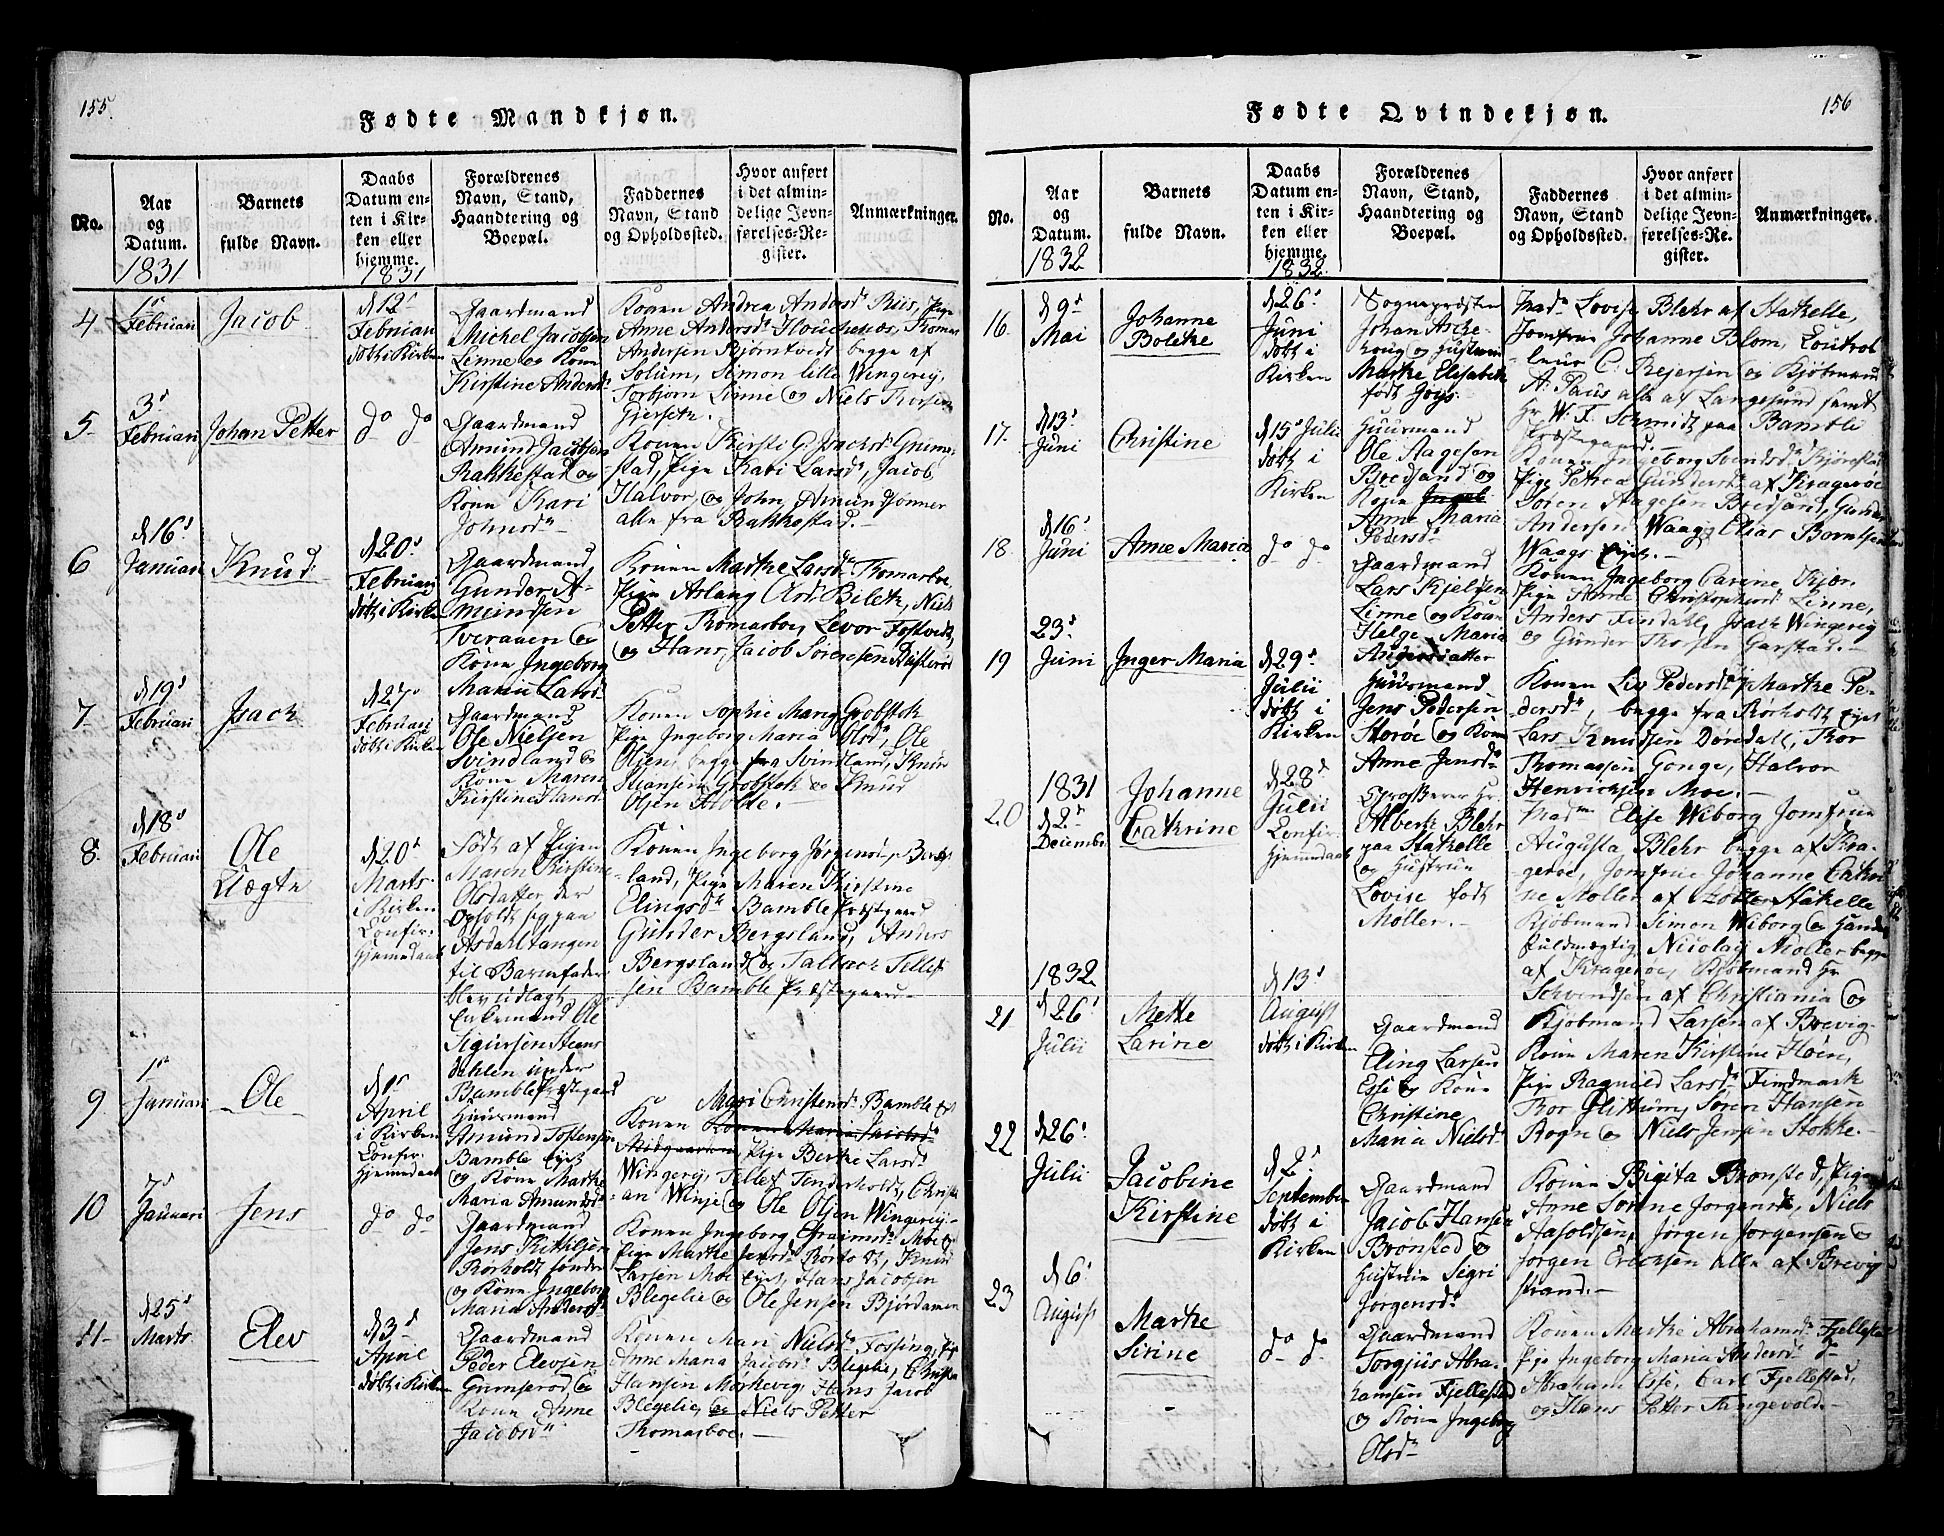 155.
Fødte Mandkjøn.
No.
Aar
og
Datum.
1831
Barnets
fulde Navn.
Daabs
Datum en-
ten i Kir-
ken eller
hjemme.
1831
Forældrenes
Navn, Stand,
Haandtering og
Boepæl.
Faddernes
Navn, Stand
og Opholdssted.
Hvor anført
i det almin-
delige Jevn-
førelses-Re-
gister.
Anmærkninger.
4
Februari
Jacob
d 12s
Februari
døbt i Kirken
Gaardmand
Michel Jacobsen
Linne og Kone
Kirstine Andersdr
Konen Andrea Andersdr Riis, Pige
Anne Andersdr, Thomas
Andersen Bjørntvedt begge af
Solum, Simon lille Wingereij,
Torbjørn Linne og Niels Thorsen
Gjerseth.
5
3s
Februari
Johan Petter
do do
Gaardmand
Amund Jacobsen
Rakkestad og
Kone Kari
Johnsdr
Konen Kirsti G. Isachsdr Grum-
stad, Pige Kari Larsdr, Jacob
Halvor og John Amunds Sønner
alle fra Rakkestad.
6
d 16s
Januari
Knud
d 20s
Februari
døbt i Kirken
Gaardmand,
Gunder A-
mundsen
Tveraaen og
Kone Ingeborg
Maria Larsdr
Konen Marthe Larsdr Thomasboe,
Pige Aslaug Bileth, Niels
Petter Thomasboe, Levor Fostvedt,
og Hans Jacob Sørensen
7
d 19s
Februari
Isach
d 27s
Februari
døbt i Kirken
Gaardmand
Ole Nielsen
Svindland og
Kone Maren
Kirstine Hansdr
Konen Sophie Marg Grobstok
Pige Ingeborg Maria Olsdr, Ole
Olsen begge fra Svindland, Knud
Grobstok og Knud
Olsen Stokke.
8.
d 18s
Februari
Ole
Uægte
d 20s
Marts
i Kirken
Confir:
Hjemmedaab
Født af Pigen
Maren Kirstine
Olsdatter, der
opholdt sig paa
Asdahltangen
til Barnefader
blev udlagt,
Enkemand Ole
Sigursen Steens
dahlen under
Bamble Præstegaard
Konen Ingeborg Jørgensdr Bergs-
land, Pige Maren Kirstine
Elingsdr Bamble Præstegaard
Gunder Bergsland, Anders
Bergsland og Talleck Tellef
sen Bamble Præstegaard.
9
1s
Januari
Ole
d 1s
April
i Kirken
Confir:
Hjemmedaab
Huusmand
Amund Tostensen
Bamble Ejet
og Kone Marthe
Maria Amundsdr
Mari Christensdr Bamble Eje
Konen
Pige Berthe Larsdr
Wingereij, Tellef Tenderholt, Christi
an Winje og Ole Olsen Wingereij
10
7s
Januari
Jens
do do
Gaardmand
Jens Kittilsen
Rørholt søndre
og Kone Ingeborg
Maria Andersdr
Konen Ingeborg Efraimsdr Moe
Pige Marthe Jensdr Rørholt, Knud
Larsen Moe Eyet, Hans Jacobsen
Blegelie og Ole Jensen Bjørdamen
11
d 25s
Marts
Elev
d 3s
April
døbt i Kirken
Gaardmand
Peder Elevsen
Gumserod, og
Kone Anne
Jacobsdr
Konen Mari Nielsdr Fossing, Pige
Anne Maria Jacobsdr Blegelie, Christen
Hansen Mørkevig, Hans Jacob
Blegelie, og Niels Petter
Thomasboe.
156
Fødte Qvindekjøn.
No.
Aar
og
Datum.
1832
Barnets
fulde Navn.
Daabs
Datum en-
ten i Kir-
ken eller
hjemme.
1832.
Forældrenes
Navn, Stand,
Haandtering og
Boepæl.
Faddernes
Navn, Stand
og Opholdssted.
Hvor anført
i det almin-
delige Jevn-
førelses-Re-
gister.
Anmærkninger.
16.
d 9s
Mai
Johanne
Bolette
d 26s
Juni
døbt i
Kirken
Sognepræsten
Johan Aske-
houg og Hustrue
Marthe Elisabeth
født Joys.
Madm Lovise Blehr af Stathelle,
Jomfrue Johanne Blom, Control-
leur C. Rejersen og Kjøbmand
A. Paus alle af Langesund samt
Hr. W. F. Schmidt paa Bamble
Præstegaard.
17.
d 13s
Juni
Christine
d 15s Julii
døbt i
Kirken
Huusmand
Ole Aagesen
Bredsand og
Kone
Anne Maria
Pedersdr
Konen Ingeborg Svendsdr Kjørestad
Pige Petrea Gundersdr af Kragerøe
Søren Aagesen Bredsand, Gunder
Andersen Waag, Elias Berntsen
Waags Ejet.
18.
d 16s
Juni
Anne Maria
do do
Gaardmand
Lars Kjelsen
Linne og Kone
Helge Maria
Andersdatter
Konen Ingeborg Carine Kjær
Pige Christophersdr Linne,
Anders Findahl, Isach Wingereij
og Gunder Thorsen Garstad.
19
23s
Juni
Inger Maria
d 29s
Julii
døbt i
Kirken
Huusmand
Jens Pedersen
Storøe og Kone
Anne Jensdr
Konen Liv Pedersdr, Pige Marthe Pe-
dersdr, begge fra Rørholt Ejet
Lars Knudsen Dørdahl, Thor
Thomassen Gonge, Halvor
Henrichsen Moe.
20
1831
d 2s
December
Johanne
Cathrine
d 28s
Julii
Confir-
Hjemmedaab
Grosserer Hr.
Albert Blehr
paa Stathelle
og Hustrue
Lovise født
Møller.
Madm Elise Wiborg, Jomfrue
Augusta Blehr begge af Kra-
gerøe, Jomfrue Johanne Cathri
ne Møller af Stathelle
Kjøbmand Simon Wiborg og Handels
Fuldmægtig Nicolay Møller begge
af Kragerøe, Kjøbmand Hr
Schvendsen af Christiania og
Kjøbmand Larsen af Brevig.
21
1832
d 26s
Julii
Mette
Larine
d 13s
August
døbt i Kirken
Gaardmand
Eling Larsen
Esse og Kone
Christine
Maria Nielsdr
Kone Maren Kirstine Høin,
Pige Ragnild Larsdr Findmark
Thor Flittum, Søren Hansen
Rogne og Niels Jensen Stokke.
22
d 26s
Julii
Jacobine
Kirstine
d 2s
September
døbt i
Kirken
Gaardmand
Jacob Hansen
Brønsted og
Hustrue Sigri
Jørgensdr
Konen Bigita Brønsted, Pige
Anne Sørine Jørgensdr, Niels
Aasoldsen, Jørgen Jørgensen og
Jørgen Ericksen alle af Brevig
strand.
23
d 6s
August
Marthe
Sirine
do do
Gaardmand
Torgjus Abra-
hamsen Fjellestad
og Kone Ingeborg
Olsdr
Konen Marthe Abrahamsdr Fjellestad
Pige Ingeborg Maria Andersdr do
Abraham Esse, Carl Fjellestad,
og Hans Petter Tangevold.